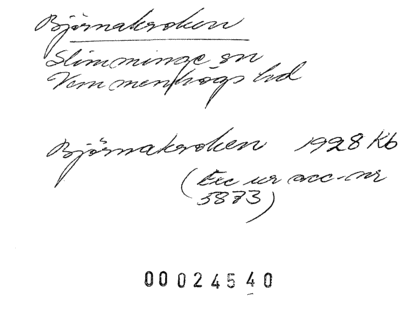 Björnakroken
Slimminge sn
Vemmenhögs hd
Björnakroken 1928 Kb
(Exc ur acc-nr
5873)
00024540